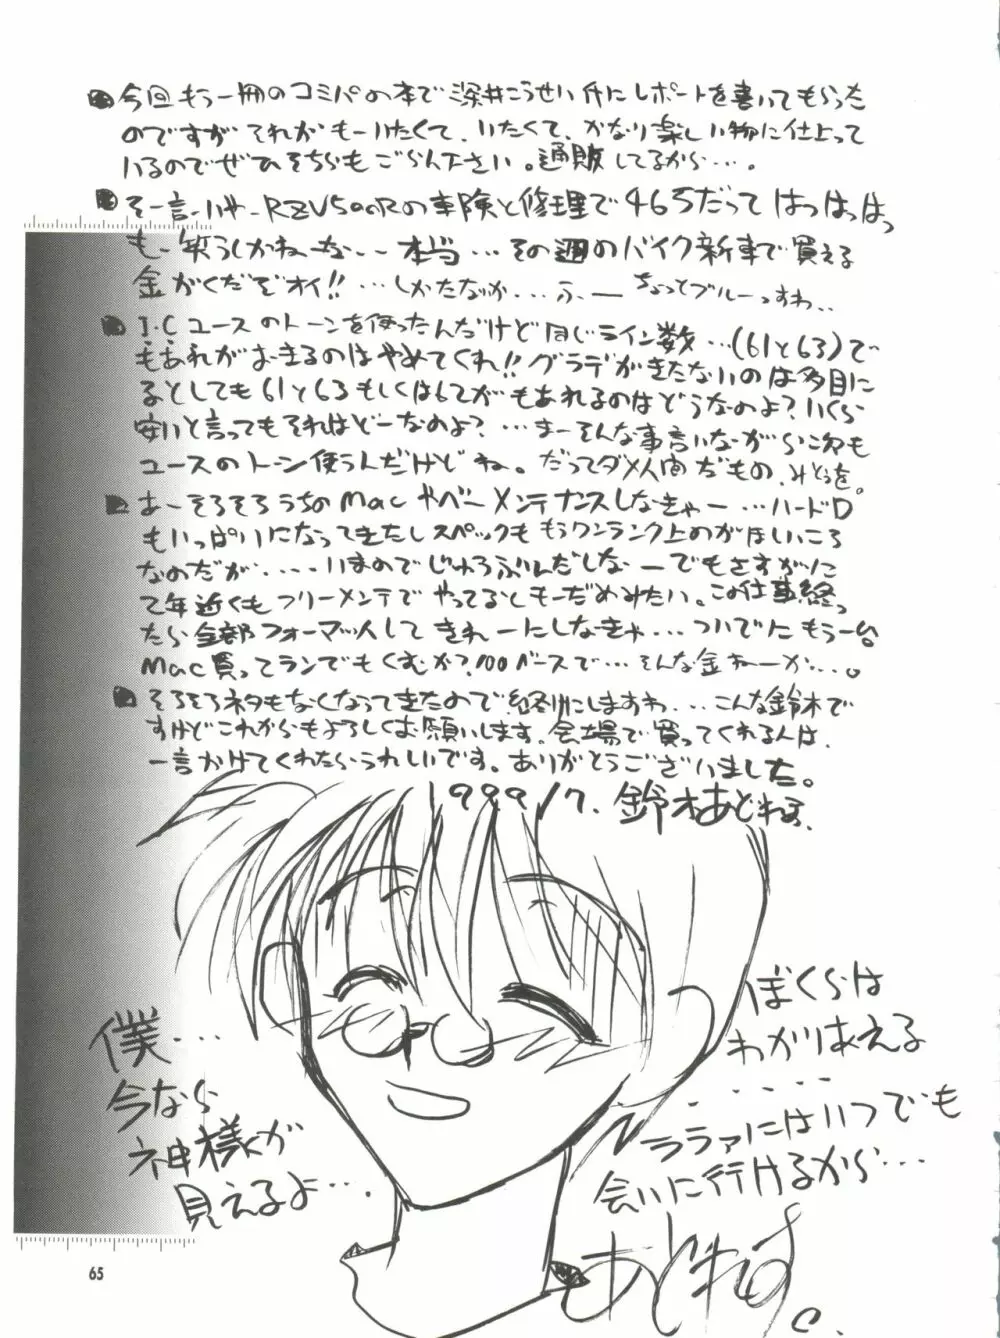 今回もう一冊のコミパの本で深井こうせい氏にレポートを書いてもらった
のですが それがもーいたくて、いたくて、かなり楽しい物に仕上って
いるのでぜひそちらもごらん下さい。通販してるから…。
そー言ーいやーRZV500Rの車険と修理で465だって はっはっはっ
もー笑うしかねーなー… 本当…その週のバイク新車で買える
金がくだぞオイ!!…しかたなか…ふー ちょっとブルーっすわ…
I・Cユースのトーンを使ったんだけど同じライン数…(61と63)で
もあれがおきるのはやめてくれ!!グラデがきたないのは多目に
るとしても61と63もしくは62がもあれるのはどうなのよ?いくら
安いと言ってもそれはどーなのよ?…まーそんな事言いながら次も
ユースのトーン使うんだけどね。だってダメ人間だもの、みとぅを。
あーそろそろうちのMacやべーメンテナンスしなきゃー…ハードD
もいっぱいになってきたしスペックももうワンランク上のがほしいころ
なのだが....いまのでじゅうぶんだしなーでもさすがに
2年近くもフリーメンテでやってるともーだめみたい。この仕事終っ
たら全部フォーマット人してきれーにしなきゃ…ついでにもう一台
Mac買ってランでもくむか?100ベースで…そんな金ねーか…。
そろそろネタもなくなってきたので終りにしますわ…こんな鈴木で
すけどこれからもよろしくお願いします。会場で買ってくれる人は、
一言かけてくれたらうれしいです。ありがとうございました。
1999/7. 鈴木あどねす.
僕…
今なら
神様が
見えるよ…
ぼくらは
わかりあえる
....
ララァにはいつでも
会いに行けるから…
あどねす。
65